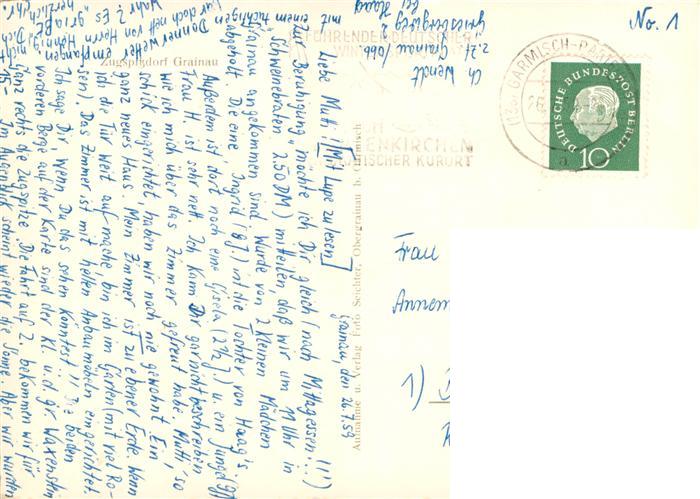 No. 1
Ch. Wendt
z. Zt. Grainau /Obb.
bei Haag
FÜHRENDER DEUTSCHER
WINTER
(13b) GARMISCH-PART
a
DEUTSCHE BUNDESPOST BERLIN
10
ENKIRCHEN
ISCHER KURORT
Zugspitzdorf Grainau
Aufnahme u. Verlag Foto Seechter, Obergrainau b. Garmisch
Frau
Annem
1)
Grainau, den 26.7.59
Liebe Mutti! [Mit Lupe zu lesen]
Zur Beruhigung möchte ich Dir gleich (nach Mittagessen!!!)
"Schweinebraten" 2,50 DM) mitteilen, daß wir um 11 Uhr in
Grainau angekommen sind. Wurden von 2 kleinen Mädchen
abgeholt. Die eine Ingrid (8 J) ist die Tochter von Haag's.
Außerdem ist dort noch eine Gisela (2½ J) u. ein Junge
Frau H. ist sehr nett. Ich kann Dir gar nicht beschreiben
wie ich mich über das Zimmer gefreut habe. Mutti, so
schick eingerichtet haben wir noch nie gewohnt. Ein
ganz neues Haus. Mein Zimmer ist zu ebener Erde. Wenn
ich die Tür weit auf mache, bin ich im Garten (mit viel Ro-
sen). Das Zimmer ist mit hellen Anbaumöbeln eingerichtet
Ich sage Dir, wenn Du das sehen könntest!!! Die beiden
vorderen Berge auf der Karte sind der Kl. u. d. gr. Waxenstein
ganz rechts die Zugspitze. Die Fahrt auf Z. bekommen wir für
15.- Im Augenblick scheint wieder die Sonne. Aber wir wurden
mit einem richtigen
Donnerwetter
empfangen.
War doch nett von
von Herrn Hennig, nicht
wahr? Es grüßt Dich
herzlichst